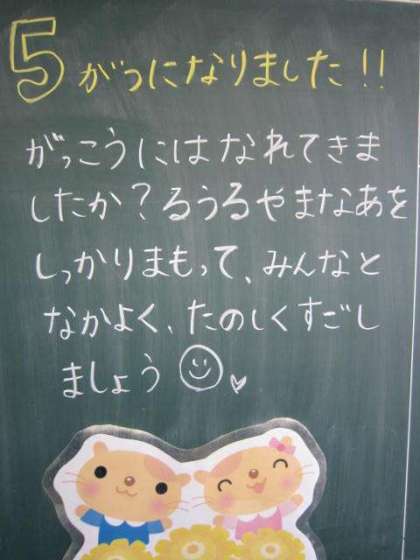 5がつになりました!!
がっこうにはなれてきま
したか?るうるやまなあを
しっかりまもって、みんなと
なかよく、たのしくすごし
ましょう